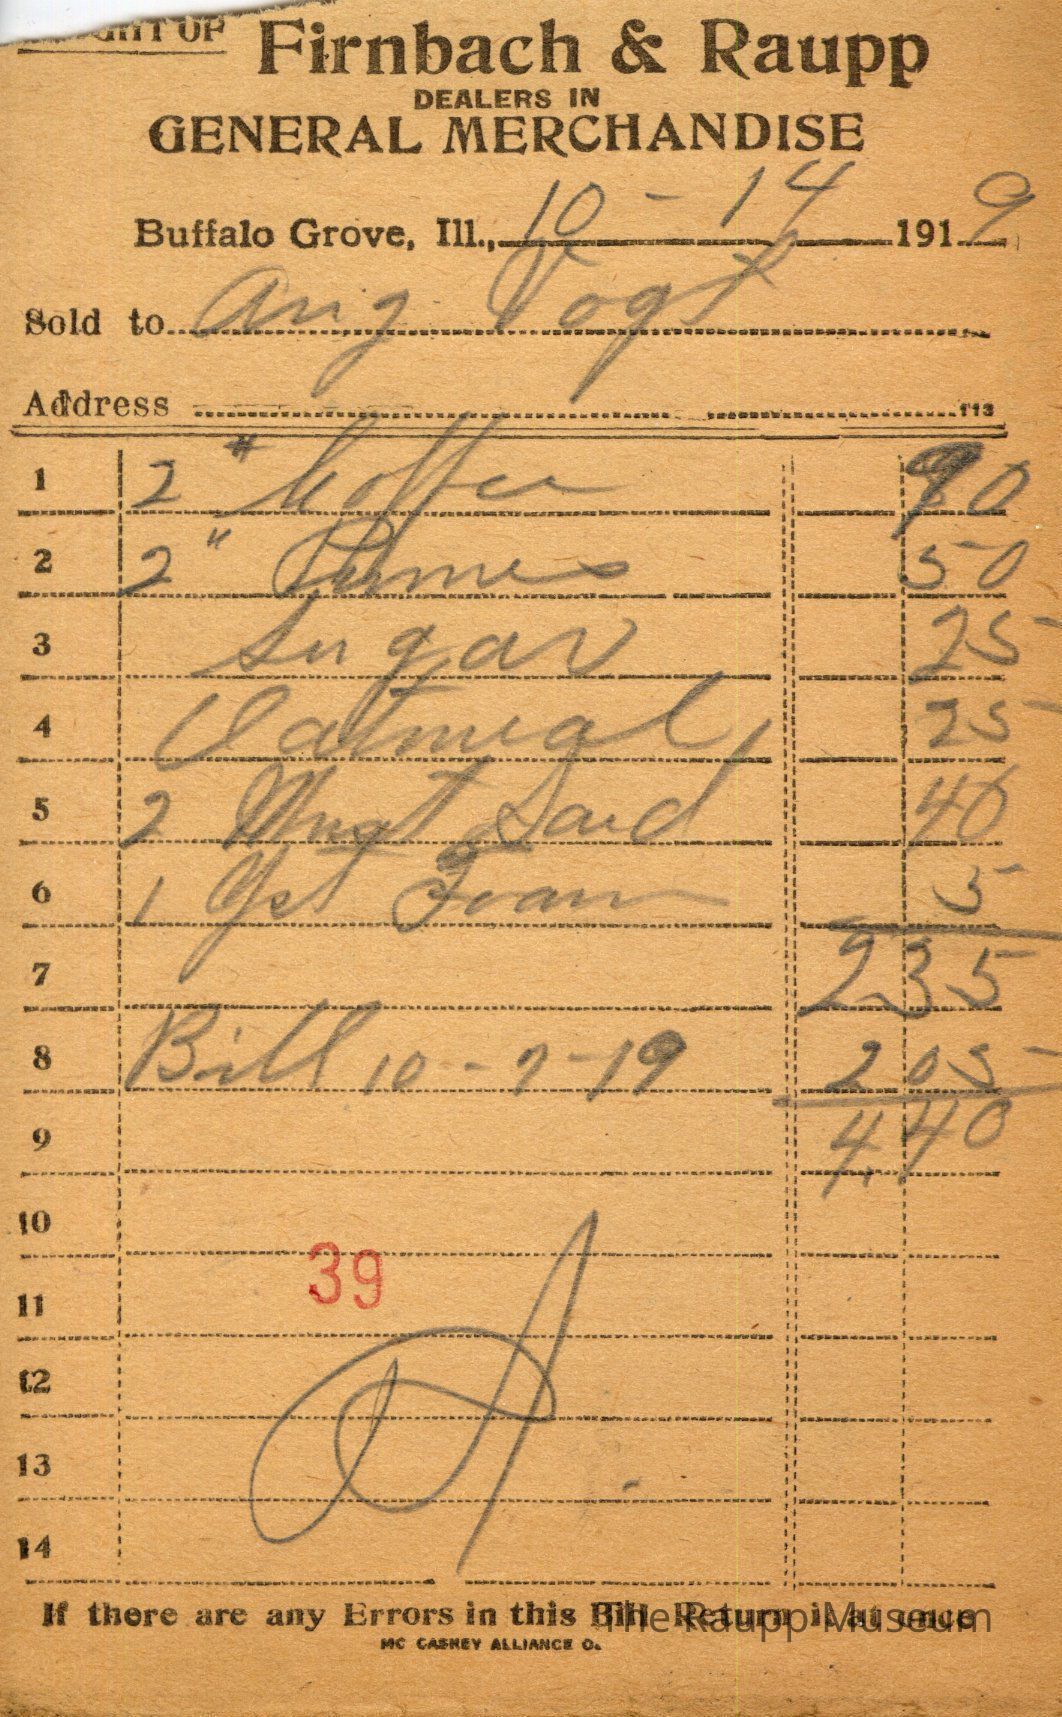 GHT OF Firnbach & Raupp
DEALERS IN
GENERAL MERCHANDISE
Buffalo Grove, Ill., 10 - 14 1919
Sold to Aug. Vogt
Address 113
1 2 " Coffee 90
2 2 " Prunes 50
3 Sugar 25
4 Oatmeal 25
5 2 Must Sard 40
6 1 Yst Foam 5
7 2 35
8 Bill 10-7-19 2 05
9 4 40
10
39
11
12
13
14
If there are any Errors in this Bill Return it at once
The Raupp Museum
MC CASKEY ALLIANCE O.